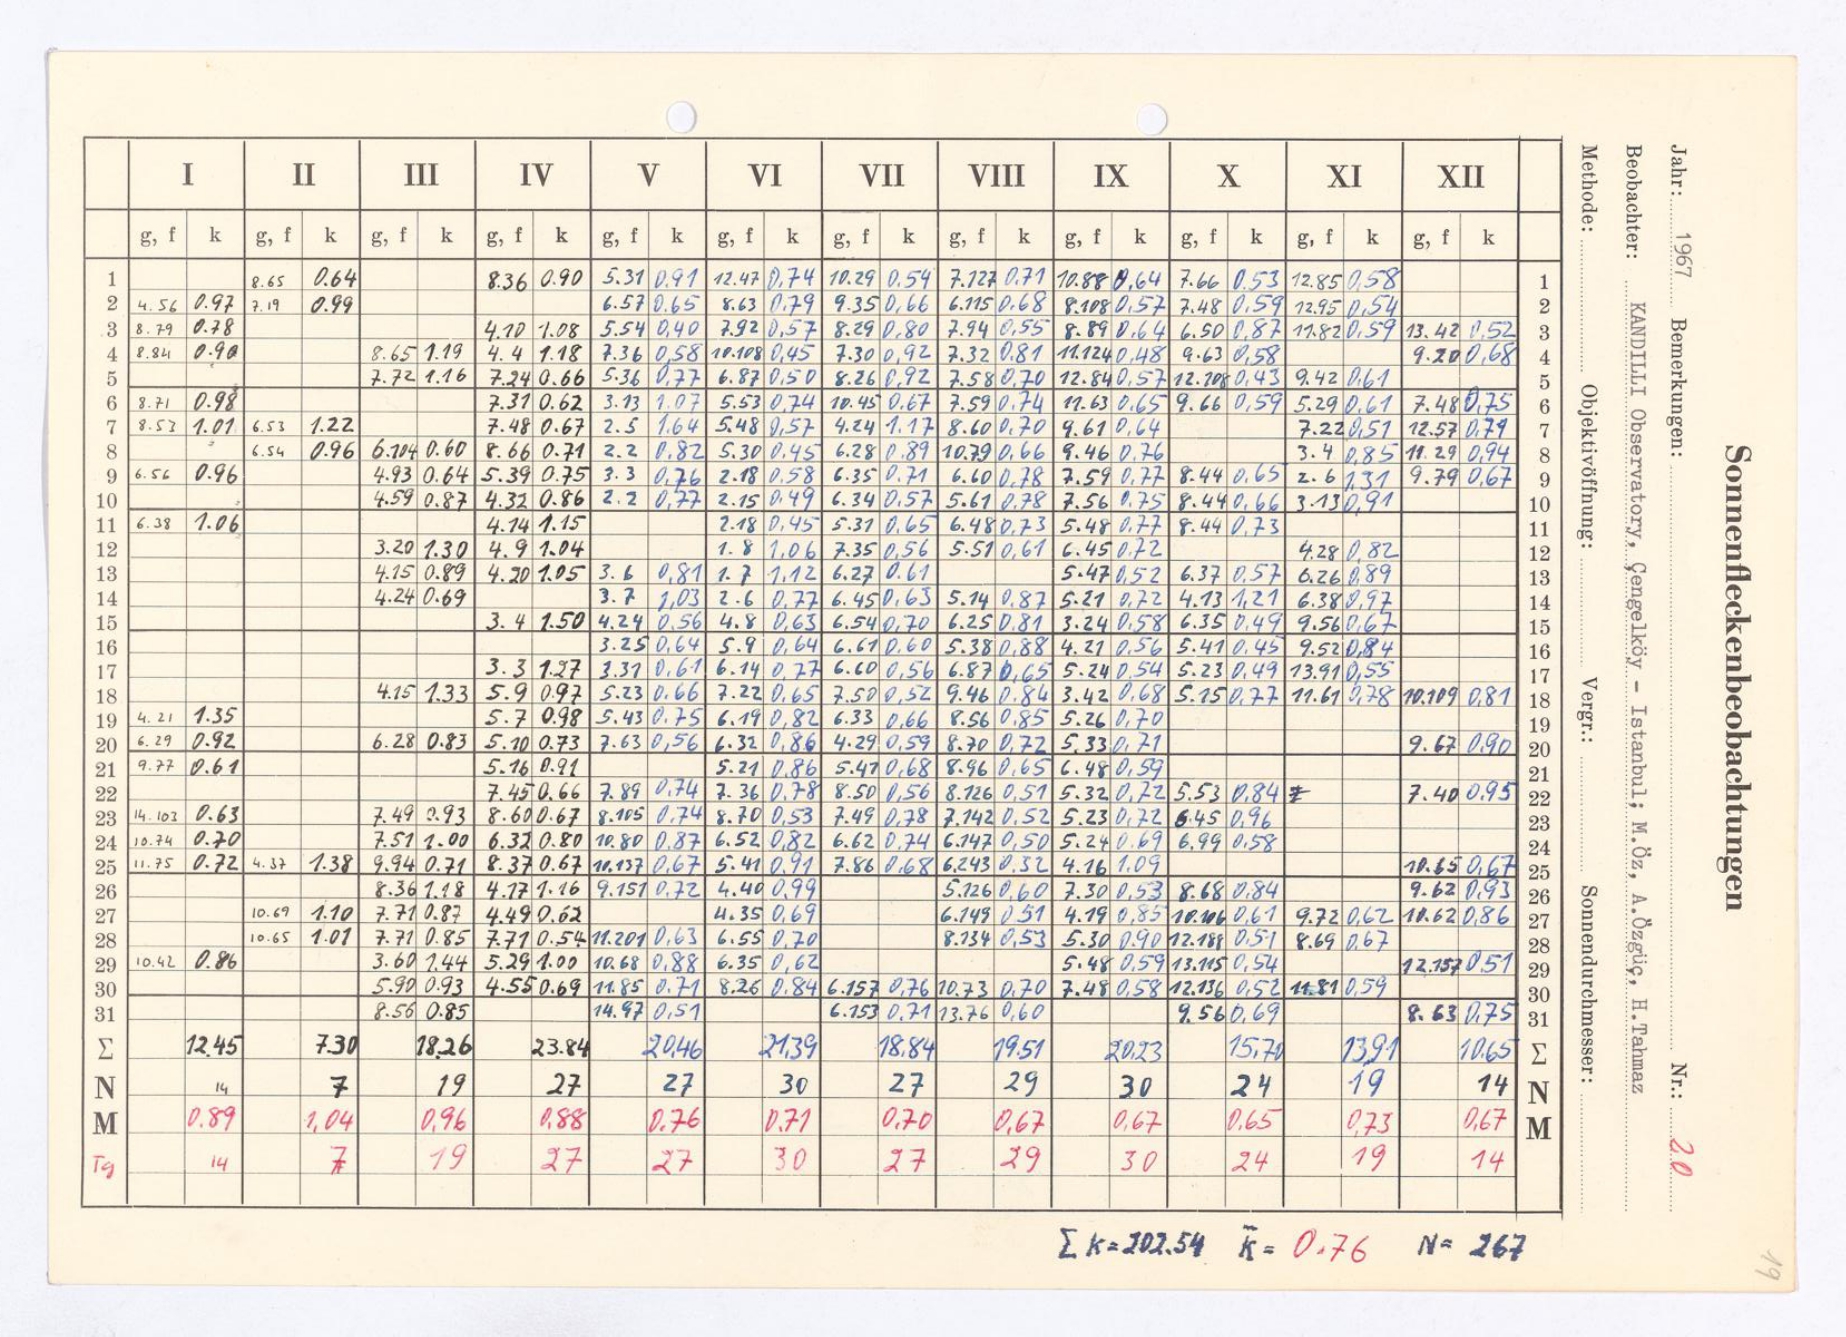 I II III IV V VI VII VIII IX X XI XII
g, f k g, f k g, f k g, f k g, f k g, f k g, f k g, f k g, f k g, f k g, f k g, f k
1 8.65 0.64 8.36 0.90 5.31 0,91 12.47 0,74 10.29 0,54 7.127 0,71 10.88 0,64 7.66 0,53 12.85 0,58 1
2 4.56 0.97 7.19 0.99 6.57 0,65 8.63 0,79 9.35 0,66 6.115 0,68 8.108 0,57 7.48 0,59 12.95 0,54 2
3 8.79 0.78 4.10 1.08 5.54 0,40 7.92 0,57 8.29 0,80 7.94 0,55 8.89 0,64 6.50 0,87 11.82 0,59 13.42 0,52 3
4 8.84 0.90 8.65 1.19 4.4 1.18 7.36 0,58 10.108 0,45 7.30 0,92 7.32 0,81 11.124 0,48 9.63 0,58 9.20 0,68 4
5 7.72 1.16 7.24 0.66 5.36 0,77 6.87 0,50 8.26 0,92 7.58 0,70 12.84 0,57 12.108 0,43 9.42 0,61 5
6 8.71 0.98 7.31 0.62 3.13 1,07 5.53 0,74 10.45 0,67 7.59 0,74 11.63 0,65 9.66 0,59 5.29 0,61 7.48 0,75 6
7 8.53 1.01 6.53 1.22 7.48 0.67 2.5 1,64 5.48 0,57 4.24 1,17 8.60 0,70 9.61 0,64 7.22 0,51 12.57 0,79 7
8 6.54 0.96 6.104 0.60 8.66 0.71 2.2 0,82 5.30 0,45 6.28 0,89 10.79 0,66 9.46 0,76 3.4 0,85 11.29 0,94 8
9 6.56 0.96 4.93 0.64 5.39 0.75 3.3 0,76 2.18 0,58 6.35 0,71 6.60 0,78 7.59 0,77 8.44 0,65 2.6 1,31 9.79 0,67 9
10 4.59 0.87 4.32 0.86 2.2 0,77 2.15 0,49 6.34 0,57 5.61 0,78 7.56 0,75 8.44 0,66 3.13 0,91 10
11 6.38 1.06 4.14 1.15 2.18 0,45 5.31 0,65 6.48 0,73 5.48 0,77 8.44 0,73 11
12 3.20 1.30 4.9 1.04 1.8 1,06 7.35 0,56 5.51 0,61 6.45 0,72 4.28 0,82 12
13 4.15 0.89 4.20 1.05 3.6 0,81 1.7 1,12 6.27 0,61 5.47 0,52 6.37 0,57 6.26 0,89 13
14 4.24 0.69 3.7 1,03 2.6 0,77 6.45 0,63 5.14 0,87 5.21 0,72 4.13 1,21 6.38 0,97 14
15 3.4 1.50 4.24 0,56 4.8 0,63 6.54 0,70 6.25 0,81 3.24 0,58 6.35 0,49 9.56 0,67 15
16 3.25 0,64 5.9 0,64 6.61 0,60 5.38 0,88 4.21 0,56 5.41 0,45 9.52 0,84 16
17 3.3 1.27 3.31 0,61 6.14 0,77 6.60 0,56 6.87 0,65 5.24 0,54 5.23 0,49 13.91 0,55 17
18 4.15 1.33 5.9 0.97 5.23 0,66 7.22 0,65 7.50 0,52 9.46 0,84 3.42 0,68 5.15 0,77 11.61 0,78 10.109 0,81 18
19 4.21 1.35 5.7 0.98 5.43 0,75 6.19 0,82 6.33 0,66 8.56 0,85 5.26 0,70 19
20 6.29 0.92 6.28 0.83 5.10 0.73 7.63 0,56 6.32 0,86 4.29 0,59 8.70 0,72 5.33 0,71 9.67 0,90 20
21 9.77 0.61 5.16 0.91 5.21 0,86 5.47 0,68 8.96 0,65 6.48 0,59 21
22 7.45 0.66 7.89 0,74 7.36 0,78 8.50 0,56 8.126 0,51 5.32 0,72 5.53 0,84 7.40 0,95 22
23 14.103 0.63 7.49 0.93 8.60 0.67 8.105 0,74 8.70 0,53 7.49 0,78 7.142 0,52 5.23 0,72 6.45 0,96 23
24 10.74 0.70 7.51 1.00 6.32 0.80 10.80 0,87 6.52 0,82 6.62 0,74 6.147 0,50 5.24 0,69 6.99 0,58 24
25 11.75 0.72 4.37 1.38 9.94 0.71 8.37 0.67 10.137 0,67 5.41 0,91 7.86 0,68 6.243 0,32 4.16 1,09 10.65 0,67 25
26 8.36 1.18 4.17 1.16 9.151 0,72 4.40 0,99 5.126 0,60 7.30 0,53 8.68 0,84 9.62 0,93 26
27 10.69 1.10 7.71 0.87 4.49 0.62 4.35 0,69 6.149 0,51 4.19 0,85 10.106 0,61 9.72 0,62 10.62 0,86 27
28 10.65 1.01 7.71 0.85 7.71 0.54 11.201 0,63 6.55 0,70 8.134 0,53 5.30 0,90 12.188 0,51 8.69 0,67 28
29 10.42 0.86 3.60 1.44 5.29 1.00 10.68 0,88 6.35 0,62 5.48 0,59 13.115 0,54 12.157 0,51 29
30 5.90 0.93 4.55 0.69 11.85 0,71 8.26 0,84 6.157 0,76 10.73 0,70 7.48 0,58 12.136 0,52 11.81 0,59 30
31 8.56 0.85 14.97 0,51 6.153 0,71 13.76 0,60 9.56 0,69 8.63 0,75 31
Σ 12.45 7.30 18.26 23.84 20,46 21,39 18,84 19.51 20,23 15,70 13,91 10.65 Σ
N 14 7 19 27 27 30 27 29 30 24 19 14 N
M 0.89 1,04 0,96 0,88 0.76 0.71 0,70 0,67 0,67 0.65 0,73 0,67 M
Tg 14 7 19 27 27 30 27 29 30 24 19 14
Σ k = 202.54 k̄ = 0.76 N = 267
Sonnenfleckenbeobachtungen
Jahr: 1967 Bemerkungen: Nr.: 20
Beobachter: KANDILLI Observatory, Çengelköy - Istanbul; M.Öz, A.Özgüç, H.Tahmaz
Methode: Objektivöffnung: Vergr.: Sonnendurchmesser:
19